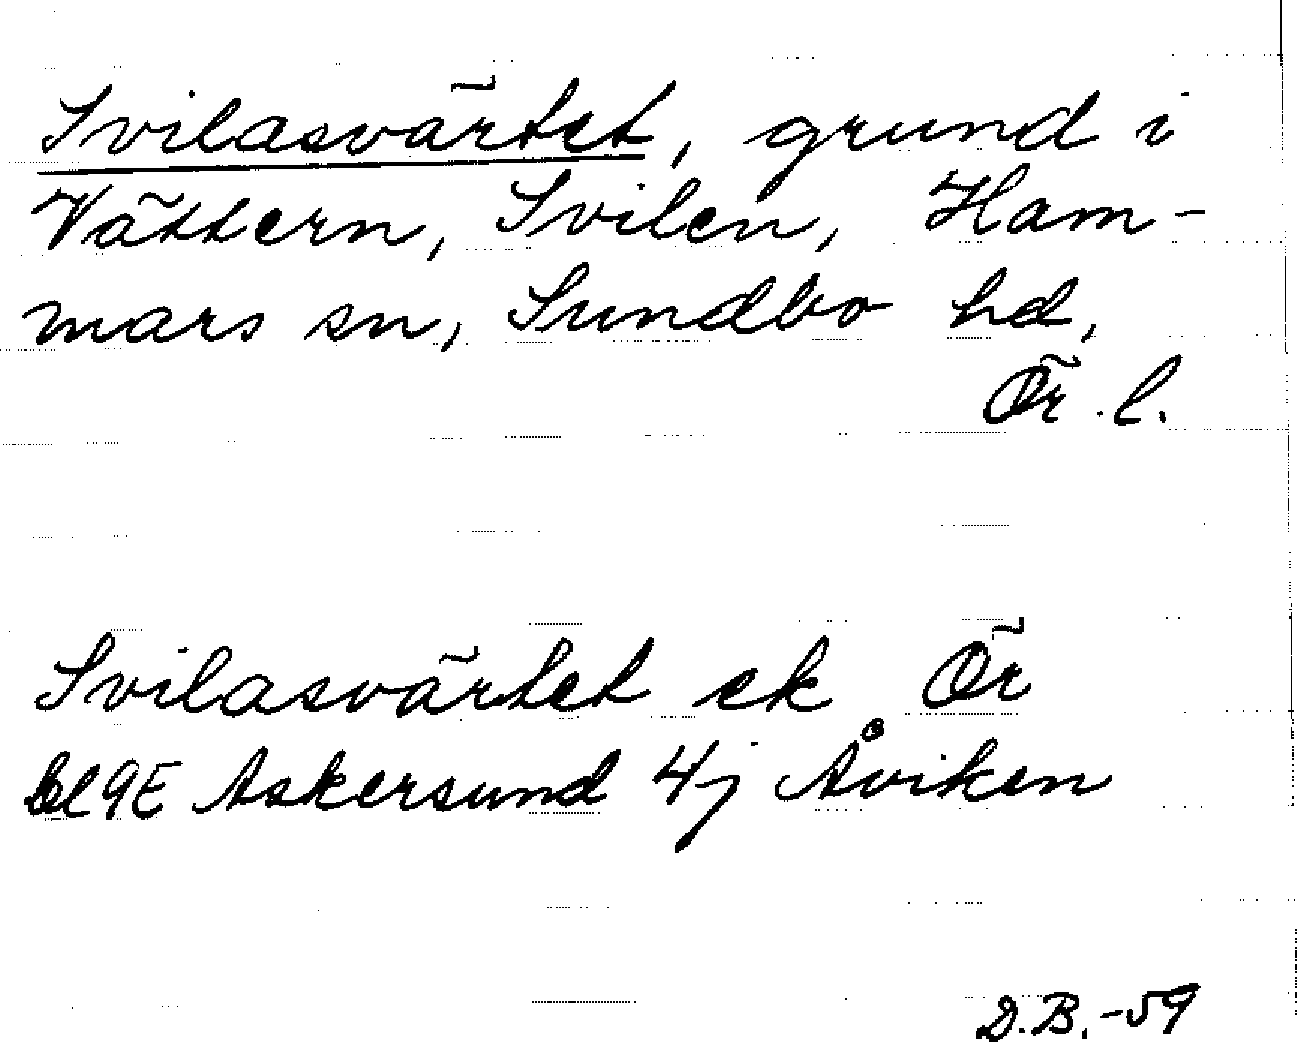 Svilasvärtet, grund i
Vättern, Svilen, Ham-
mars sn, Sundbo hd,
Ör. l.
Svilasvärtet ek Ör
bl 9E Askersund 4j Åviken
D.B.-59